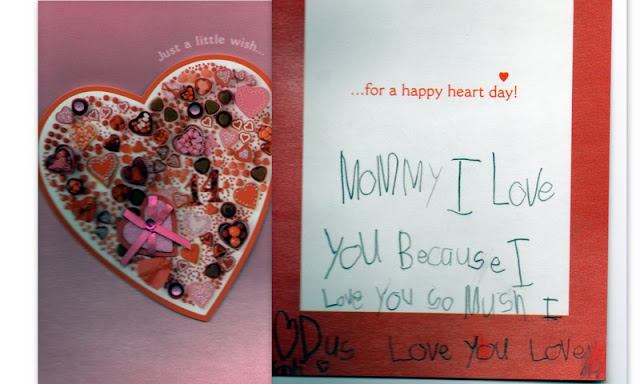 Just a little wish...
14
...for a happy heart day!
MOMMY I Love
YOU Because I
Love You So Mush I
Dus Love You Love